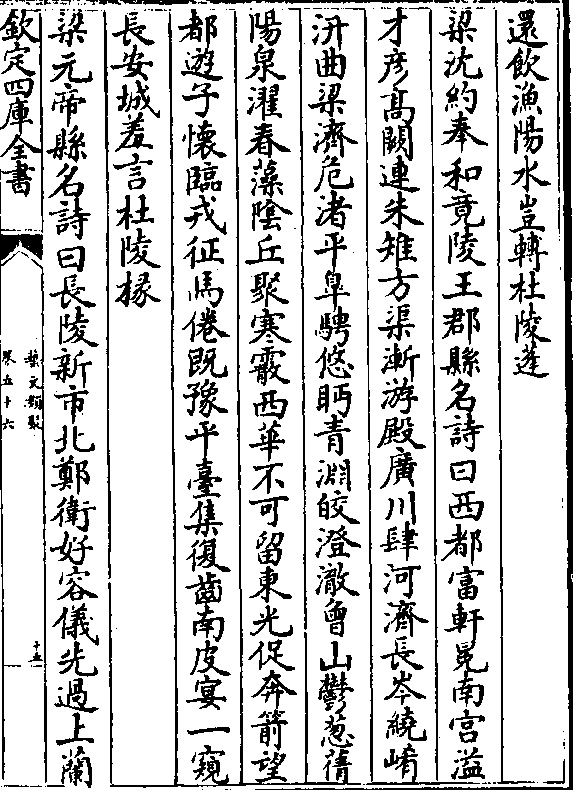 還飲漁陽水豈轉杜陵蓬
梁沈約奉和竟陵王郡縣名詩曰西都富軒冕南宮溢
才彦髙闕連朱雉方渠漸游殿廣川肆河濟長岑繞崤
汧曲梁濟危渚平皐騁悠眄青淵皎澄澈曾山鬱葱蒨
陽泉濯春藻陰丘聚寒霰西華不可留東光促奔箭望
都遊子懐臨戎征馬倦既豫平臺集復齒南皮宴一窺
長安城羞言杜陵掾
梁元帝縣名詩曰長陵新市北鄭衛好容儀先過上蘭
欽定四庫全書
藝文類聚
卷五十六
十五